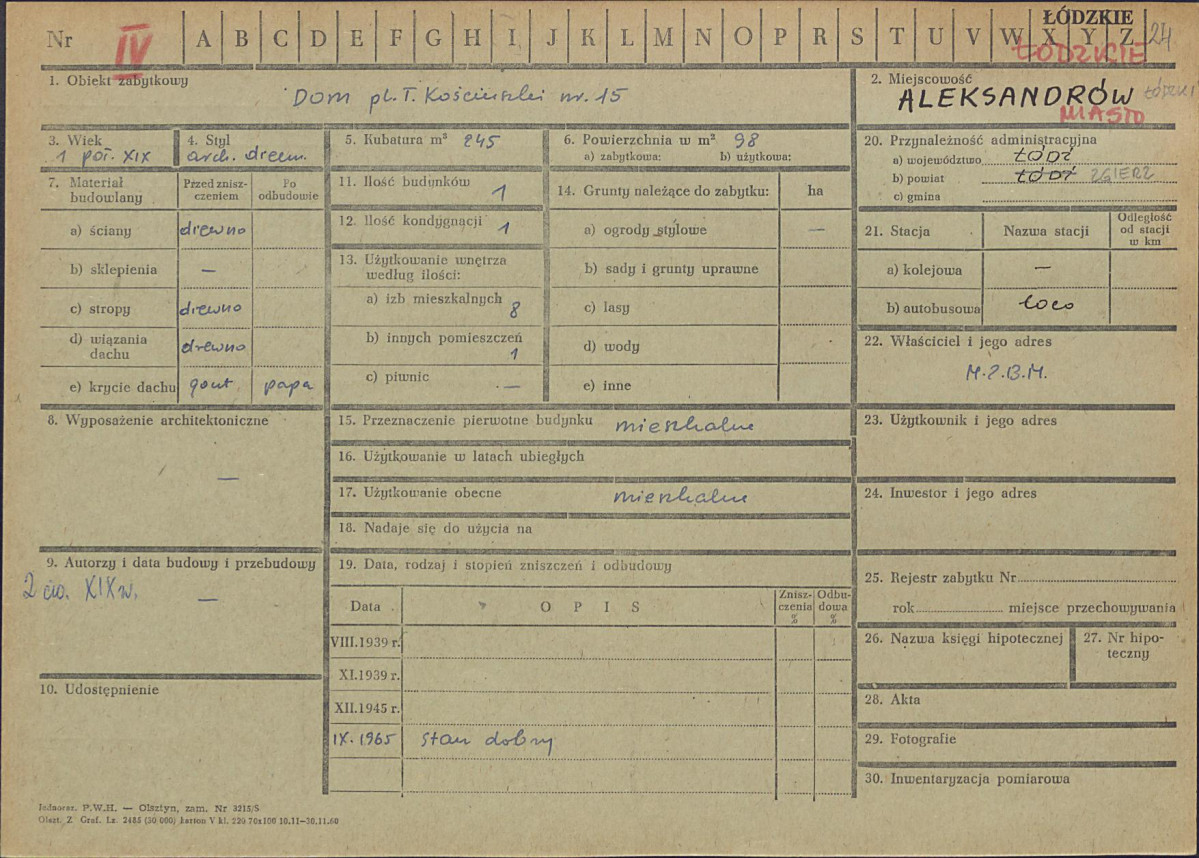 Nr IV A B C D E F G H I J K L M N O P R S T U V W X Y Z 24
ŁÓDZKIE
ŁÓDZKIE
1. Obiekt zabytkowy
Dom pl. T. Kościuszki nr. 15
2. Miejscowość
ALEKSANDRÓW ŁÓDZKI
MIASTO
3. Wiek
1 poł. XIX
4. Styl
arch. drewn.
5. Kubatura m³ 245
6. Powierzchnia w m² 98
a) zabytkowa: b) użytkowa:
7. Materiał budowlany
Przed zniszczeniem
Po odbudowie
a) ściany drewno
b) sklepienia —
c) stropy drewno
d) wiązania dachu drewno
e) krycie dachu gont papa
8. Wyposażenie architektoniczne
—
9. Autorzy i data budowy i przebudowy
2 ćw. XIX w. —
10. Udostępnienie
11. Ilość budynków 1
12. Ilość kondygnacji 1
13. Użytkowanie wnętrza według ilości:
a) izb mieszkalnych 8
b) innych pomieszczeń 1
c) piwnic —
14. Grunty należące do zabytku: ha
a) ogrody stylowe —
b) sady i grunty uprawne
c) lasy
d) wody
e) inne
15. Przeznaczenie pierwotne budynku mieszkalne
16. Użytkowanie w latach ubiegłych
17. Użytkowanie obecne mieszkalne
18. Nadaje się do użycia na
19. Data, rodzaj i stopień zniszczeń i odbudowy
Data O P I S Zniszczenia % Odbudowa %
VIII.1939 r.
XI.1939 r.
XII.1945 r.
IX.1965 stan dobry
20. Przynależność administracyjna
a) województwo ŁÓDŹ
b) powiat ŁÓDŹ ZGIERZ
c) gmina
21. Stacja Nazwa stacji Odległość od stacji w km
a) kolejowa —
b) autobusowa loco
22. Właściciel i jego adres
M.Z.B.M.
23. Użytkownik i jego adres
24. Inwestor i jego adres
25. Rejestr zabytku Nr
rok miejsce przechowywania
26. Nazwa księgi hipotecznej
27. Nr hipoteczny
28. Akta
29. Fotografie
30. Inwentaryzacja pomiarowa
Jednoraz. P.W.H. — Olsztyn, zam. Nr 3215/S
Olszt. Z Graf. Lz. 2485 (30 000) karton V kl. 220 70x100 10.11—30.11.60